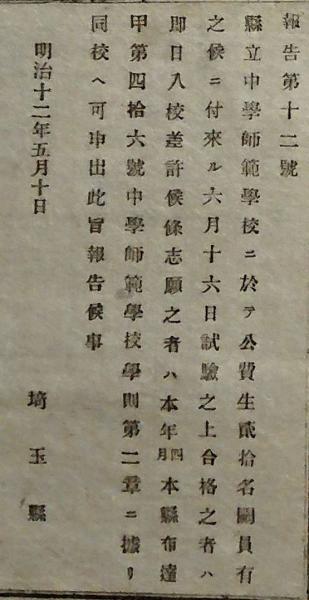 報告第十二號
縣立中學師範學校ニ於テ公費生貳拾名闕員有
之候ニ付來ル六月十六日試驗之上合格之者ハ
即日入校差許候條志願之者ハ本年四月本縣布達
甲第四拾六號中學師範學校學則第二章ニ據リ
同校ヘ可申出此旨報告候事
明治十二年五月十日
埼玉縣